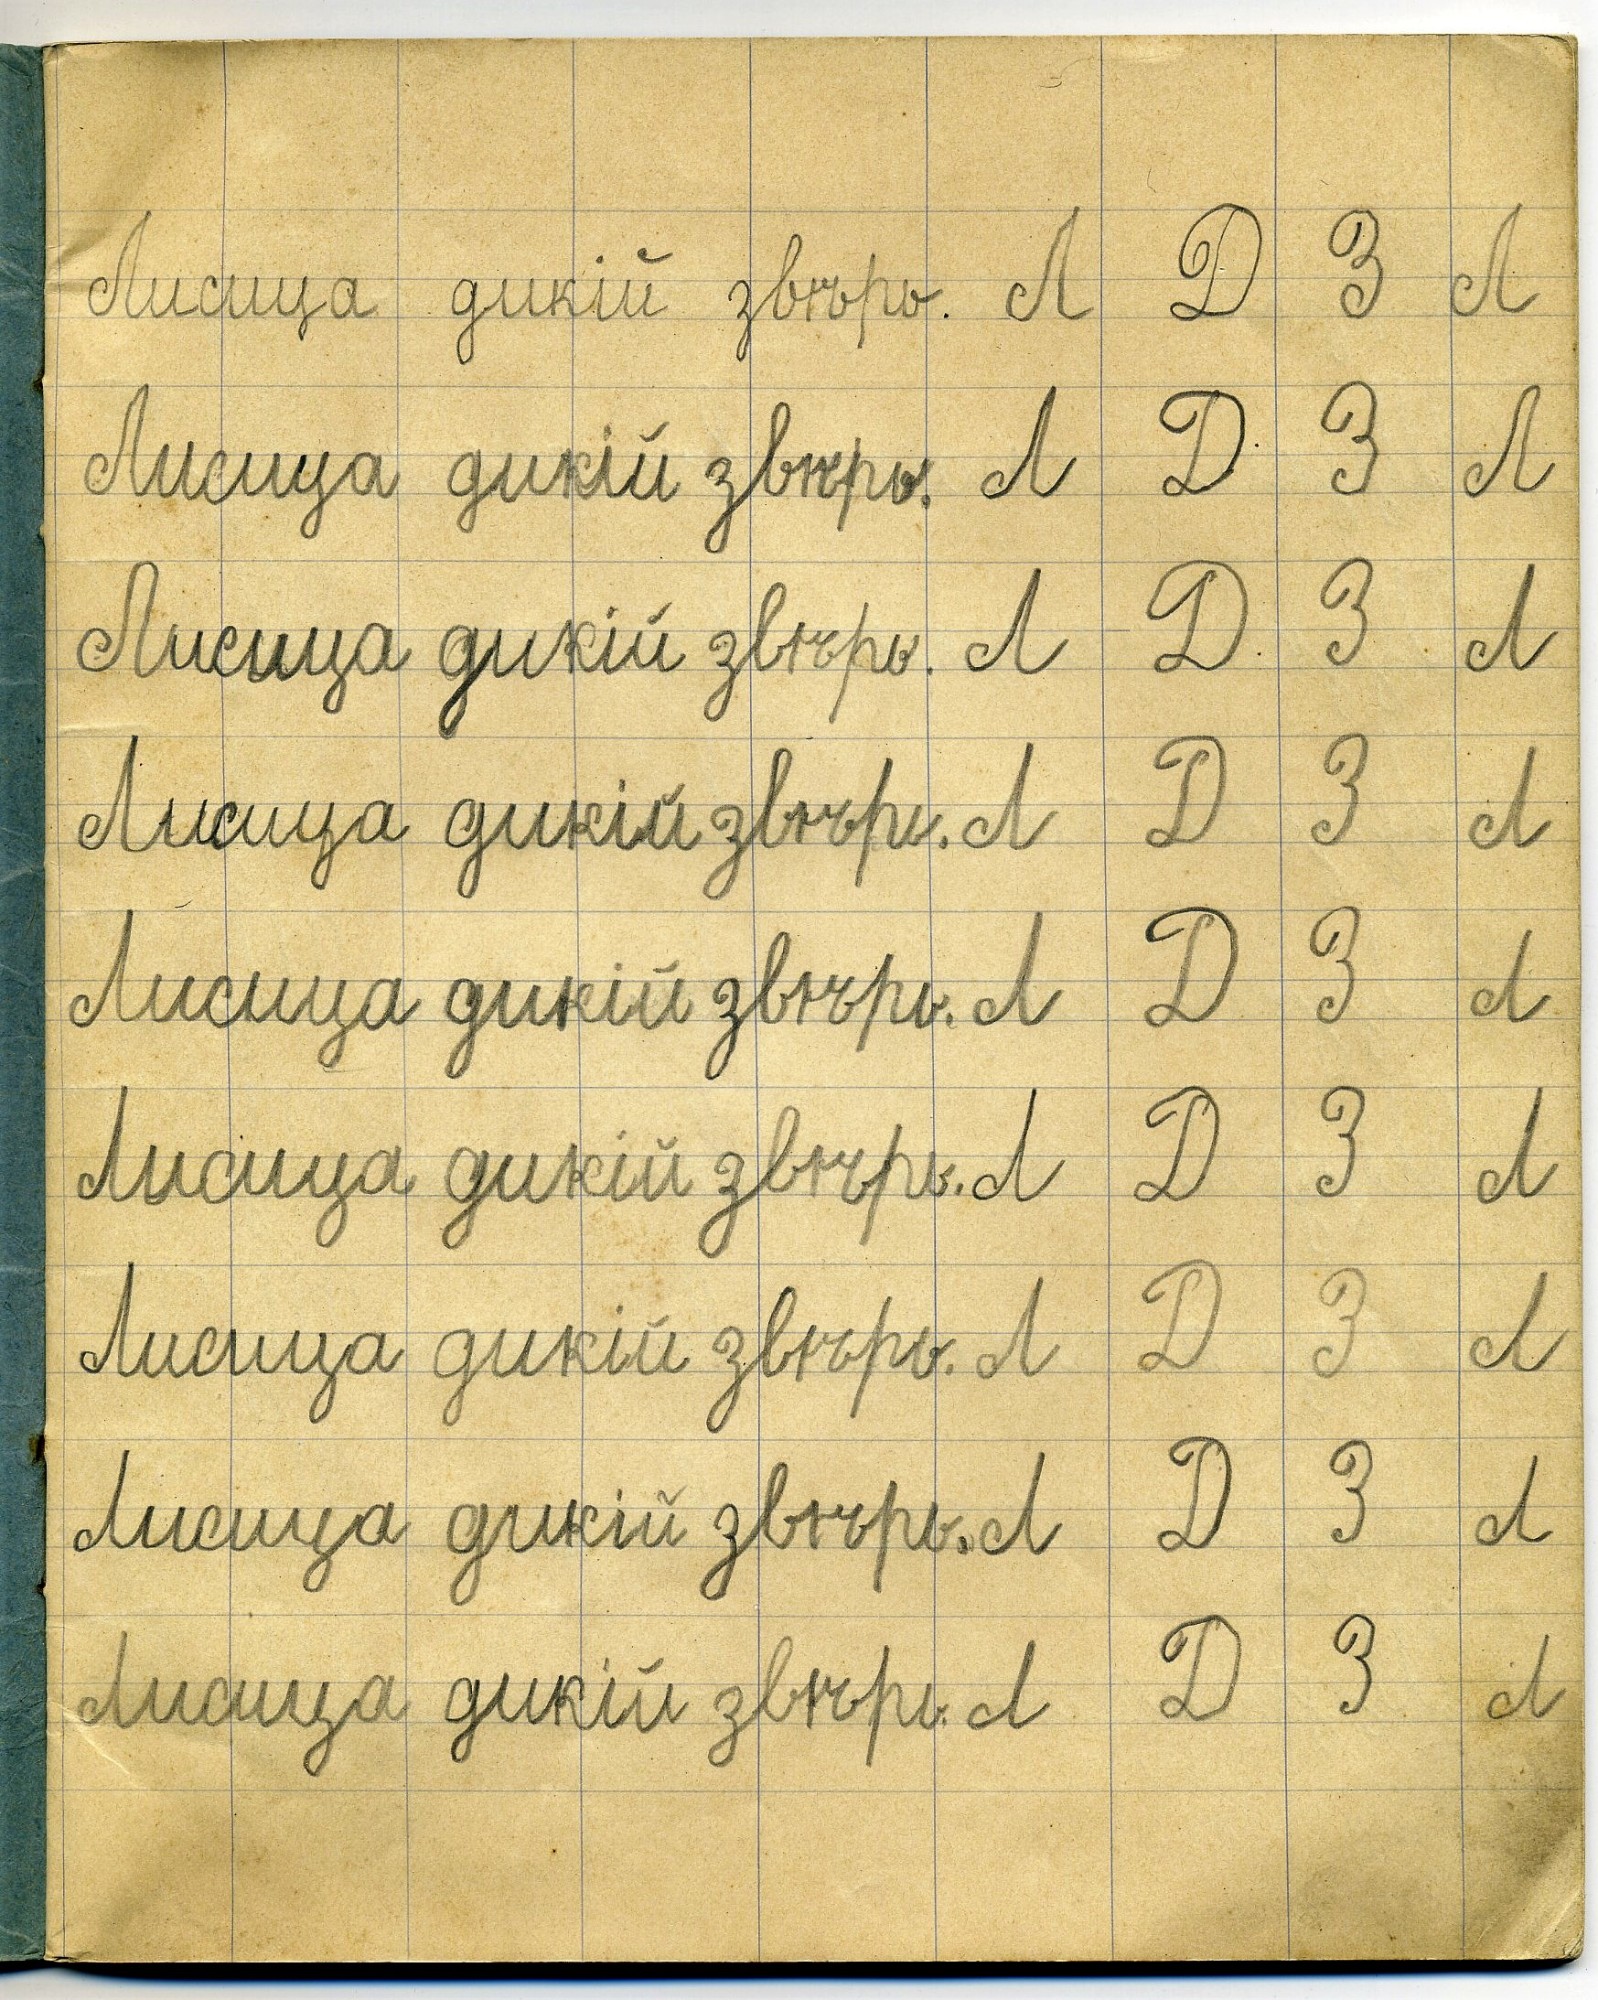 Лисица дикій звѣрь. Л Д З Л
Лисица дикій звѣрь. Л Д З Л
Лисица дикій звѣрь. Л Д З Л
Лисица дикій звѣрь. Л Д З Л
Лисица дикій звѣрь. Л Д З Л
Лисица дикій звѣрь. Л Д З Л
Лисица дикій звѣрь. Л Д З Л
Лисица дикій звѣрь. Л Д З Л
Лисица дикій звѣрь. Л Д З Л